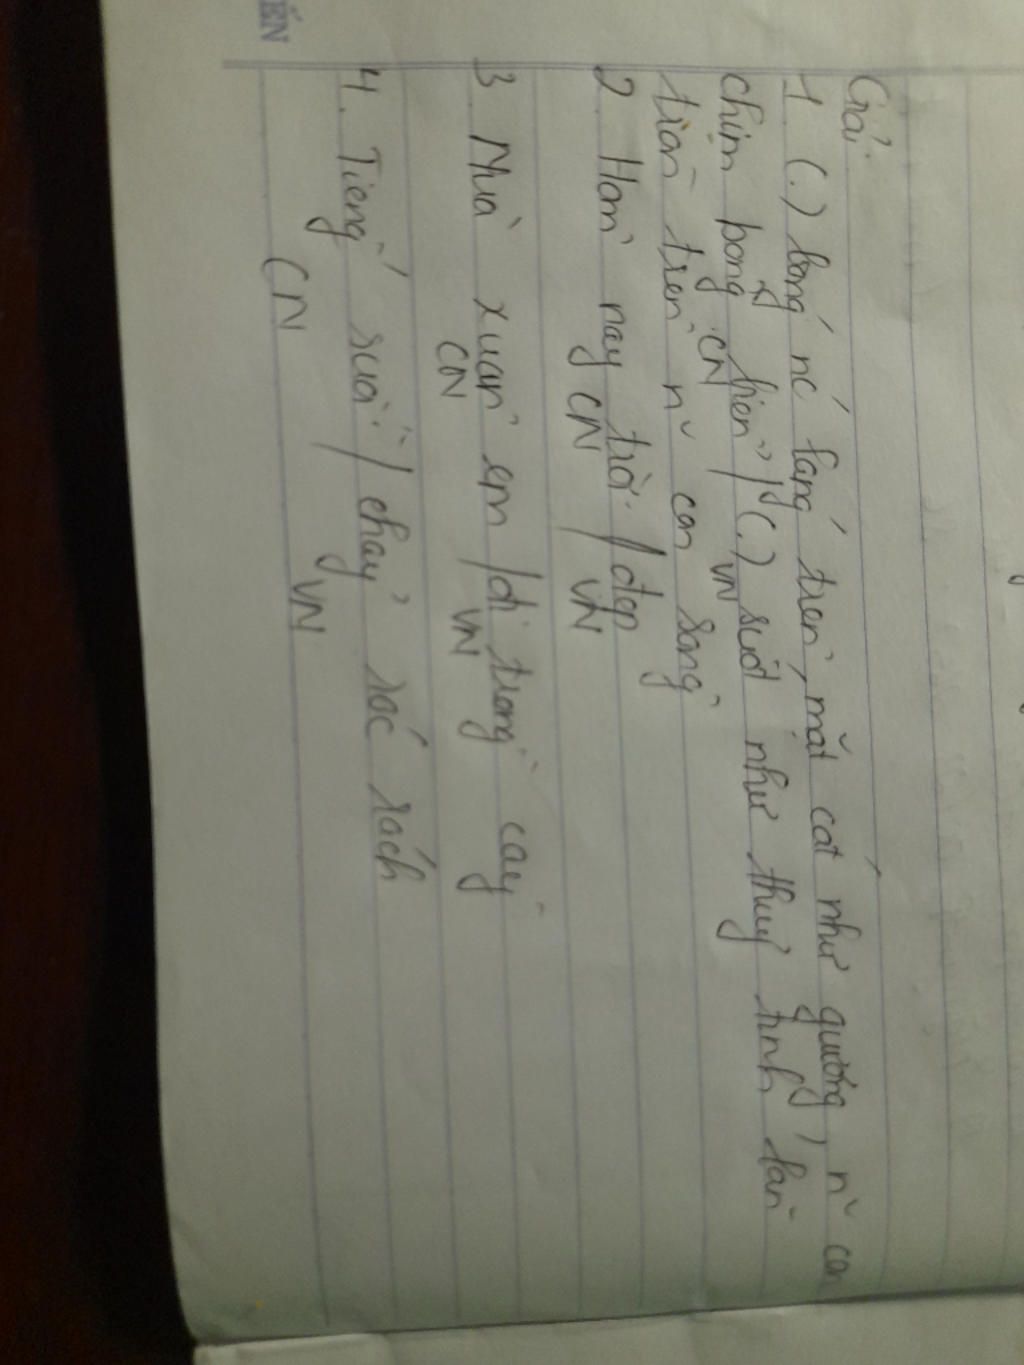 Giải
1 (.) bóng nó láng trên mặt cát như gương, n~ con
chim bông biển / (.) suốt như thuỷ tinh lăn
CN VN
tròn trên n~ con sóng
2 Hôm nay trời / đẹp
CN VN
3 Mùa xuân em / đi trồng cây
CN VN
4. Tiếng suối / chảy róc rách
CN VN
ẾN